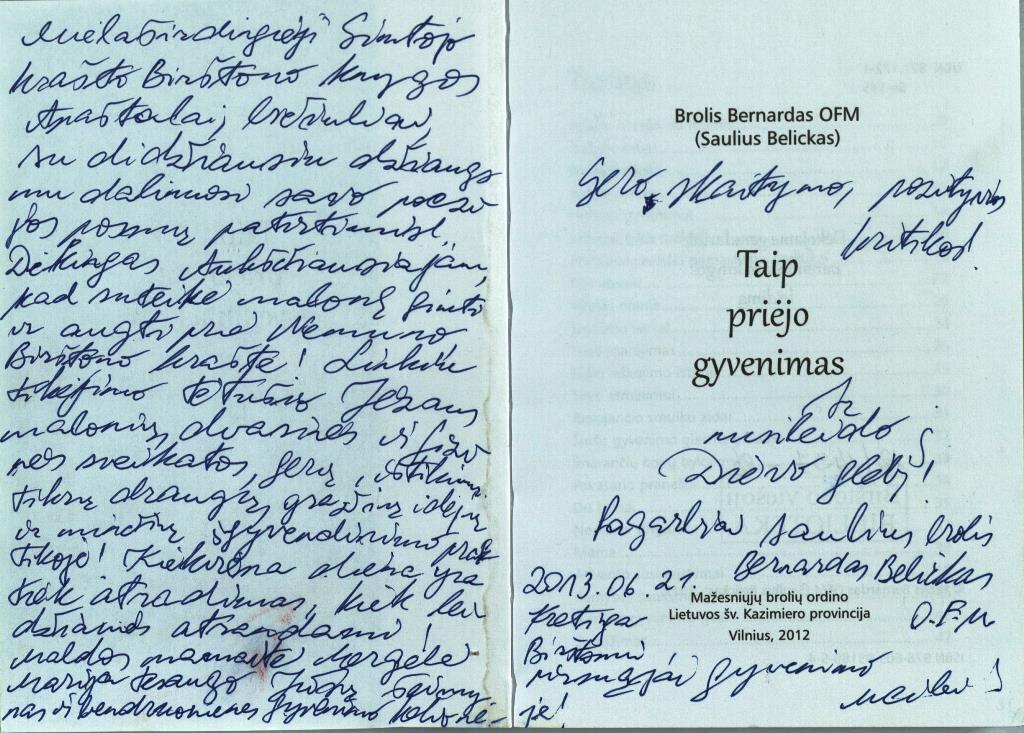 Mielaširdingieji Gimtojo
krašto Birštono knygos
Apaštalai, bičiuliai,
su didžiausiu džiaugs
mu dalinuosi savo poezi
jos posmų patirtimi.
Dėkingas Aukščiausiajam,
kad suteikė malonę gimti
ir augti prie Nemuno
Birštono krašte! Linkiu
tikėjimo Jėzaus
malonių, dvasinės ir fizi
nės sveikatos, gerų, ištikimų
tikrų draugų, gražių idėjų
ir minčių išgyvendinimo prak
tikoje! Kiekviena diena yra
tiek atradimas, kiek lei
džiamės atrandami!
Maldos mamaitė Mergelė
Marija tesaugo Jūsų šeimy
nas ir bendruomenės gyvenimo kelionė
Brolis Bernardas OFM
(Saulius Belickas)
Gero skaitymo, pozityvios
kritikos!
Taip
priėjo
gyvenimas
Ir
nusileido
Dievo glėbį,
Pagarbiai Saulius brolis
Bernardas Belickas
2013.06.21.
Mažesniųjų brolių ordino
Lietuvos šv. Kazimiero provincija
O.F.M
Kretinga
Vilnius, 2012
Birštonui
pirmajai gyvenimo
je!